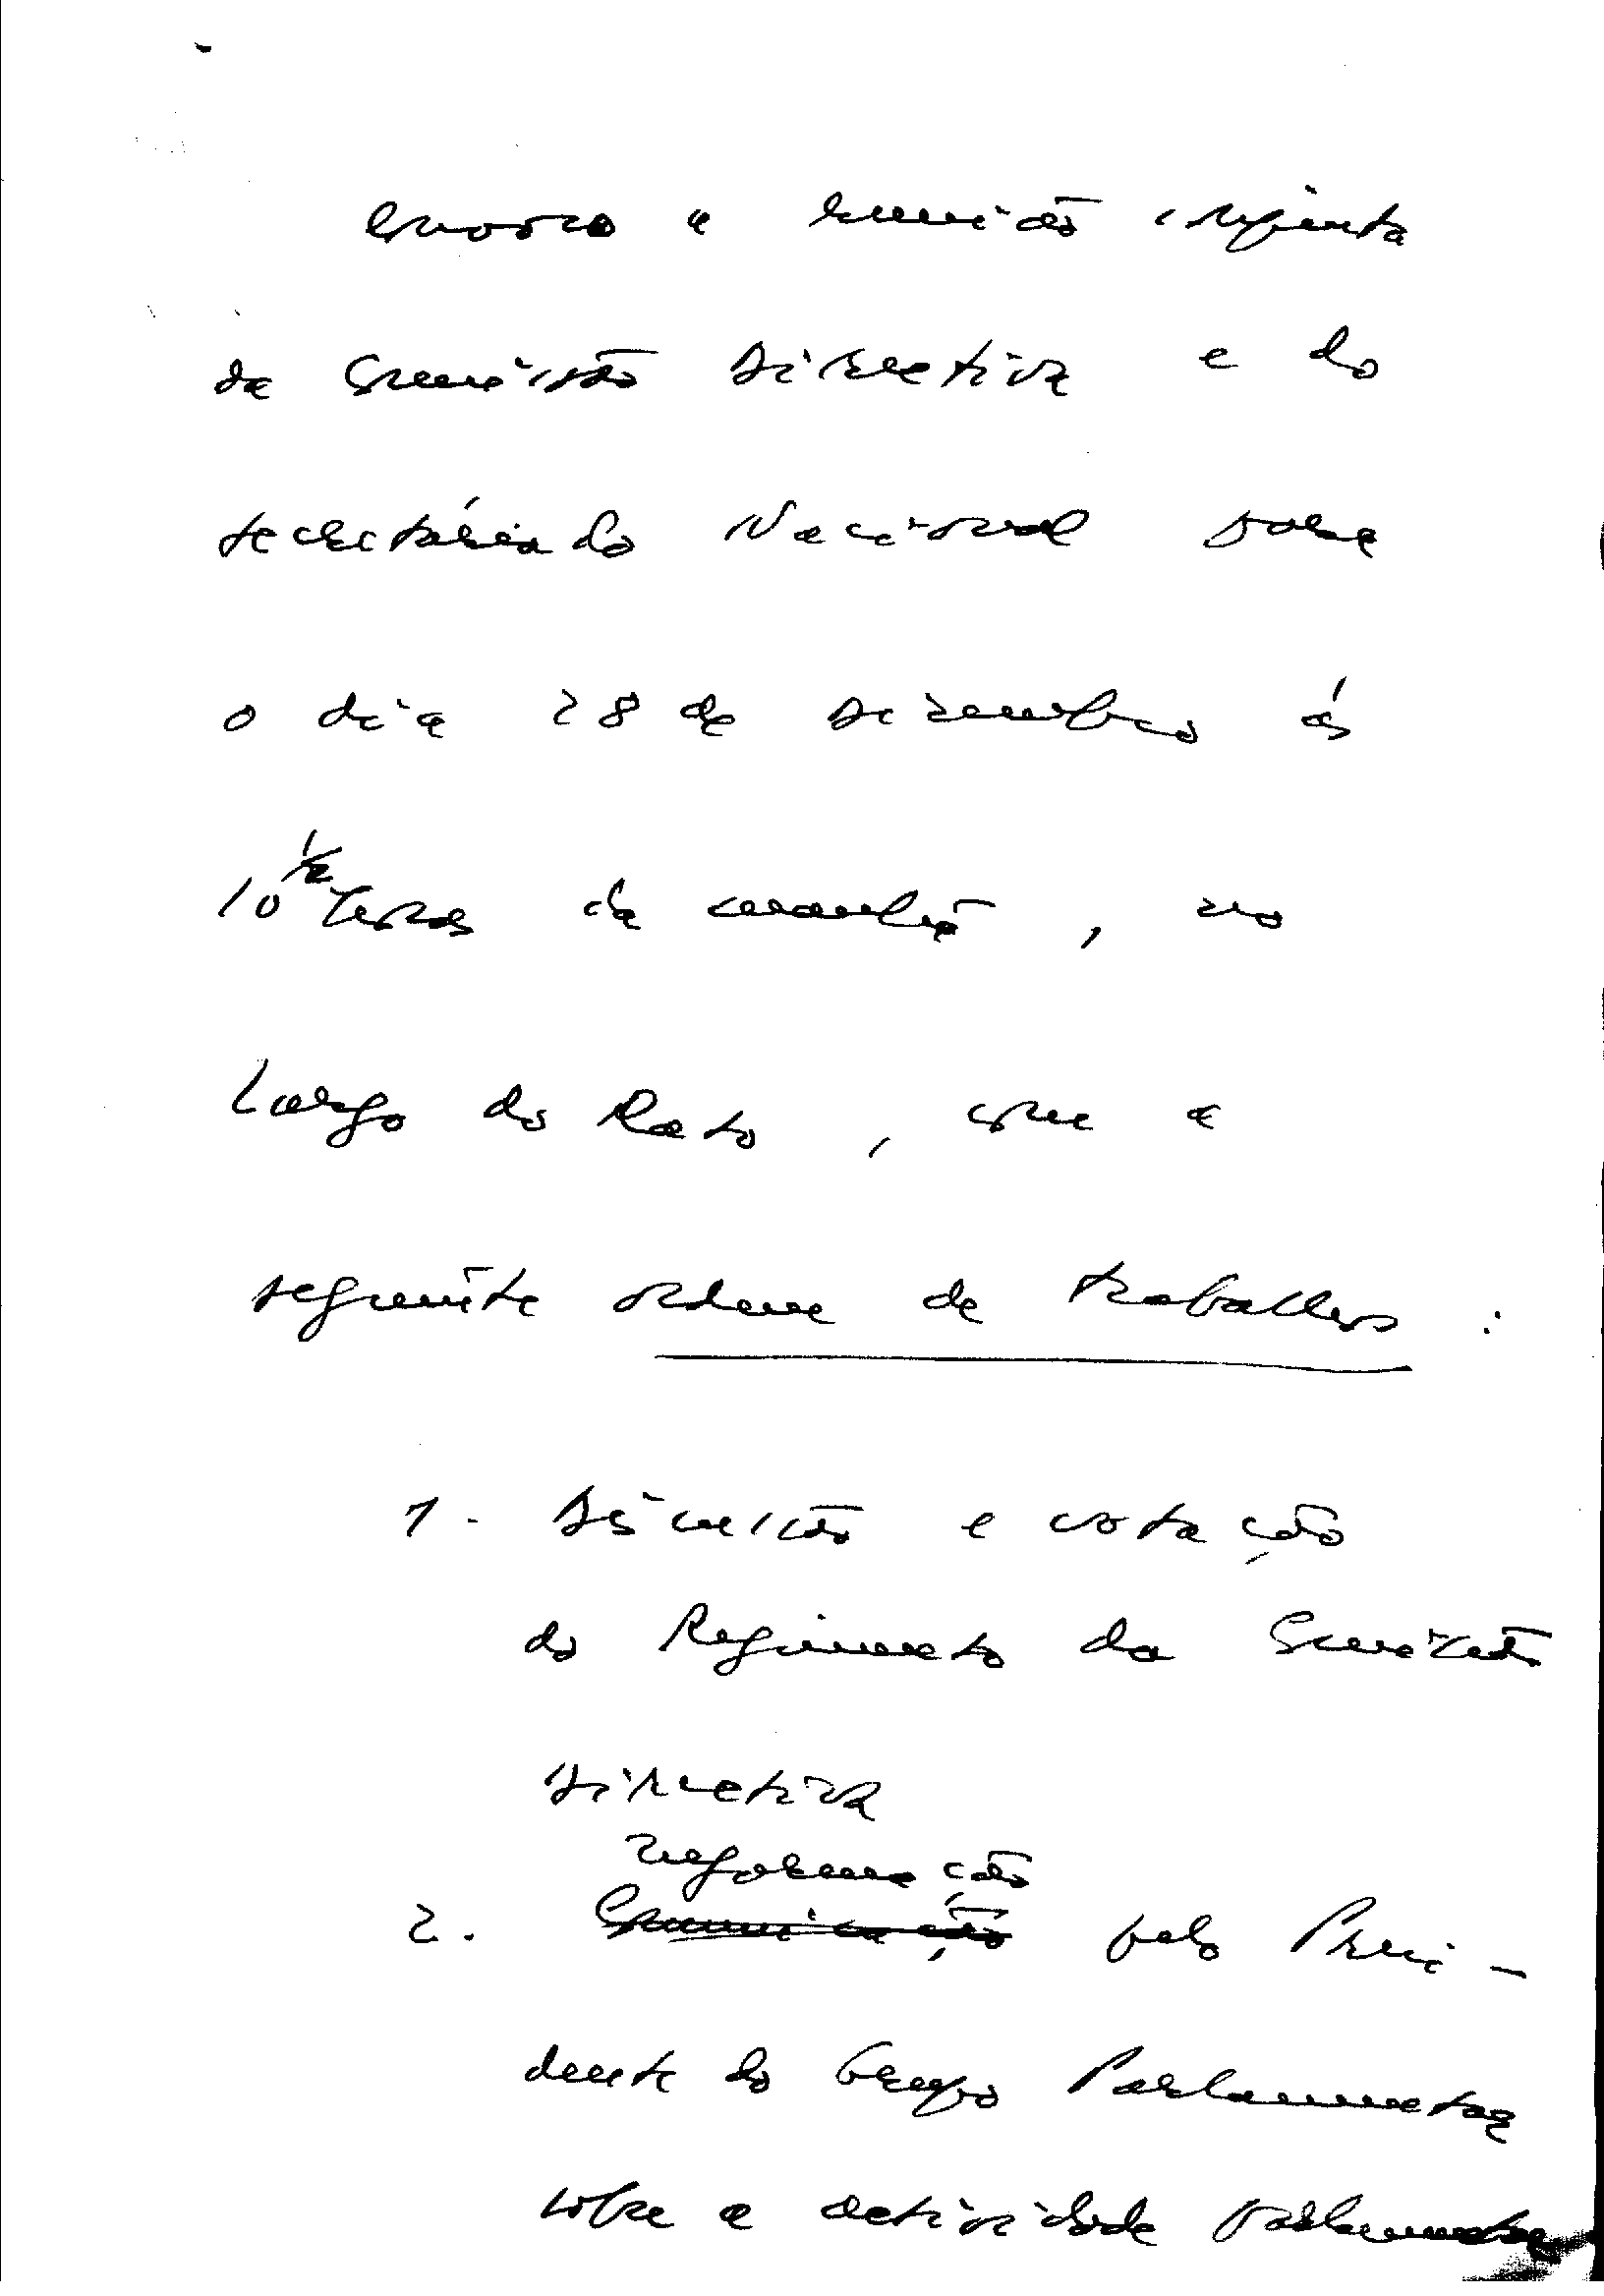 Convoco a reunião conjunta
da Comissão Directiva e do
Secretáriado Nacional para
o dia 28 de Dezembro ás
10 1/2 horas da manhã, no
Largo do Rato, com a
seguinte ordem de trabalhos :
1. Discussão e votação
do Regimento da Comissão
Directiva
Informação
2. Comunicação pelo Presi-
dente do Grupo Parlamentar
sobre a actividade Parlamentar